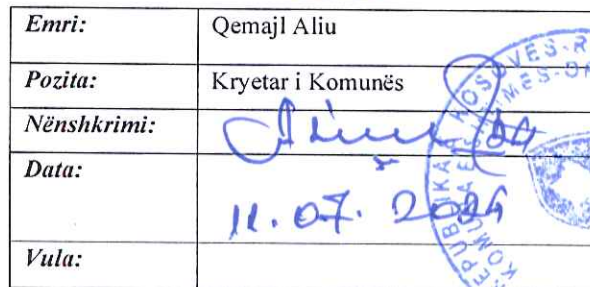 Emri: Qemajl Aliu
Pozita: Kryetar i Komunës
Nënshkrimi:
Data:
11.07.2024
Vula: